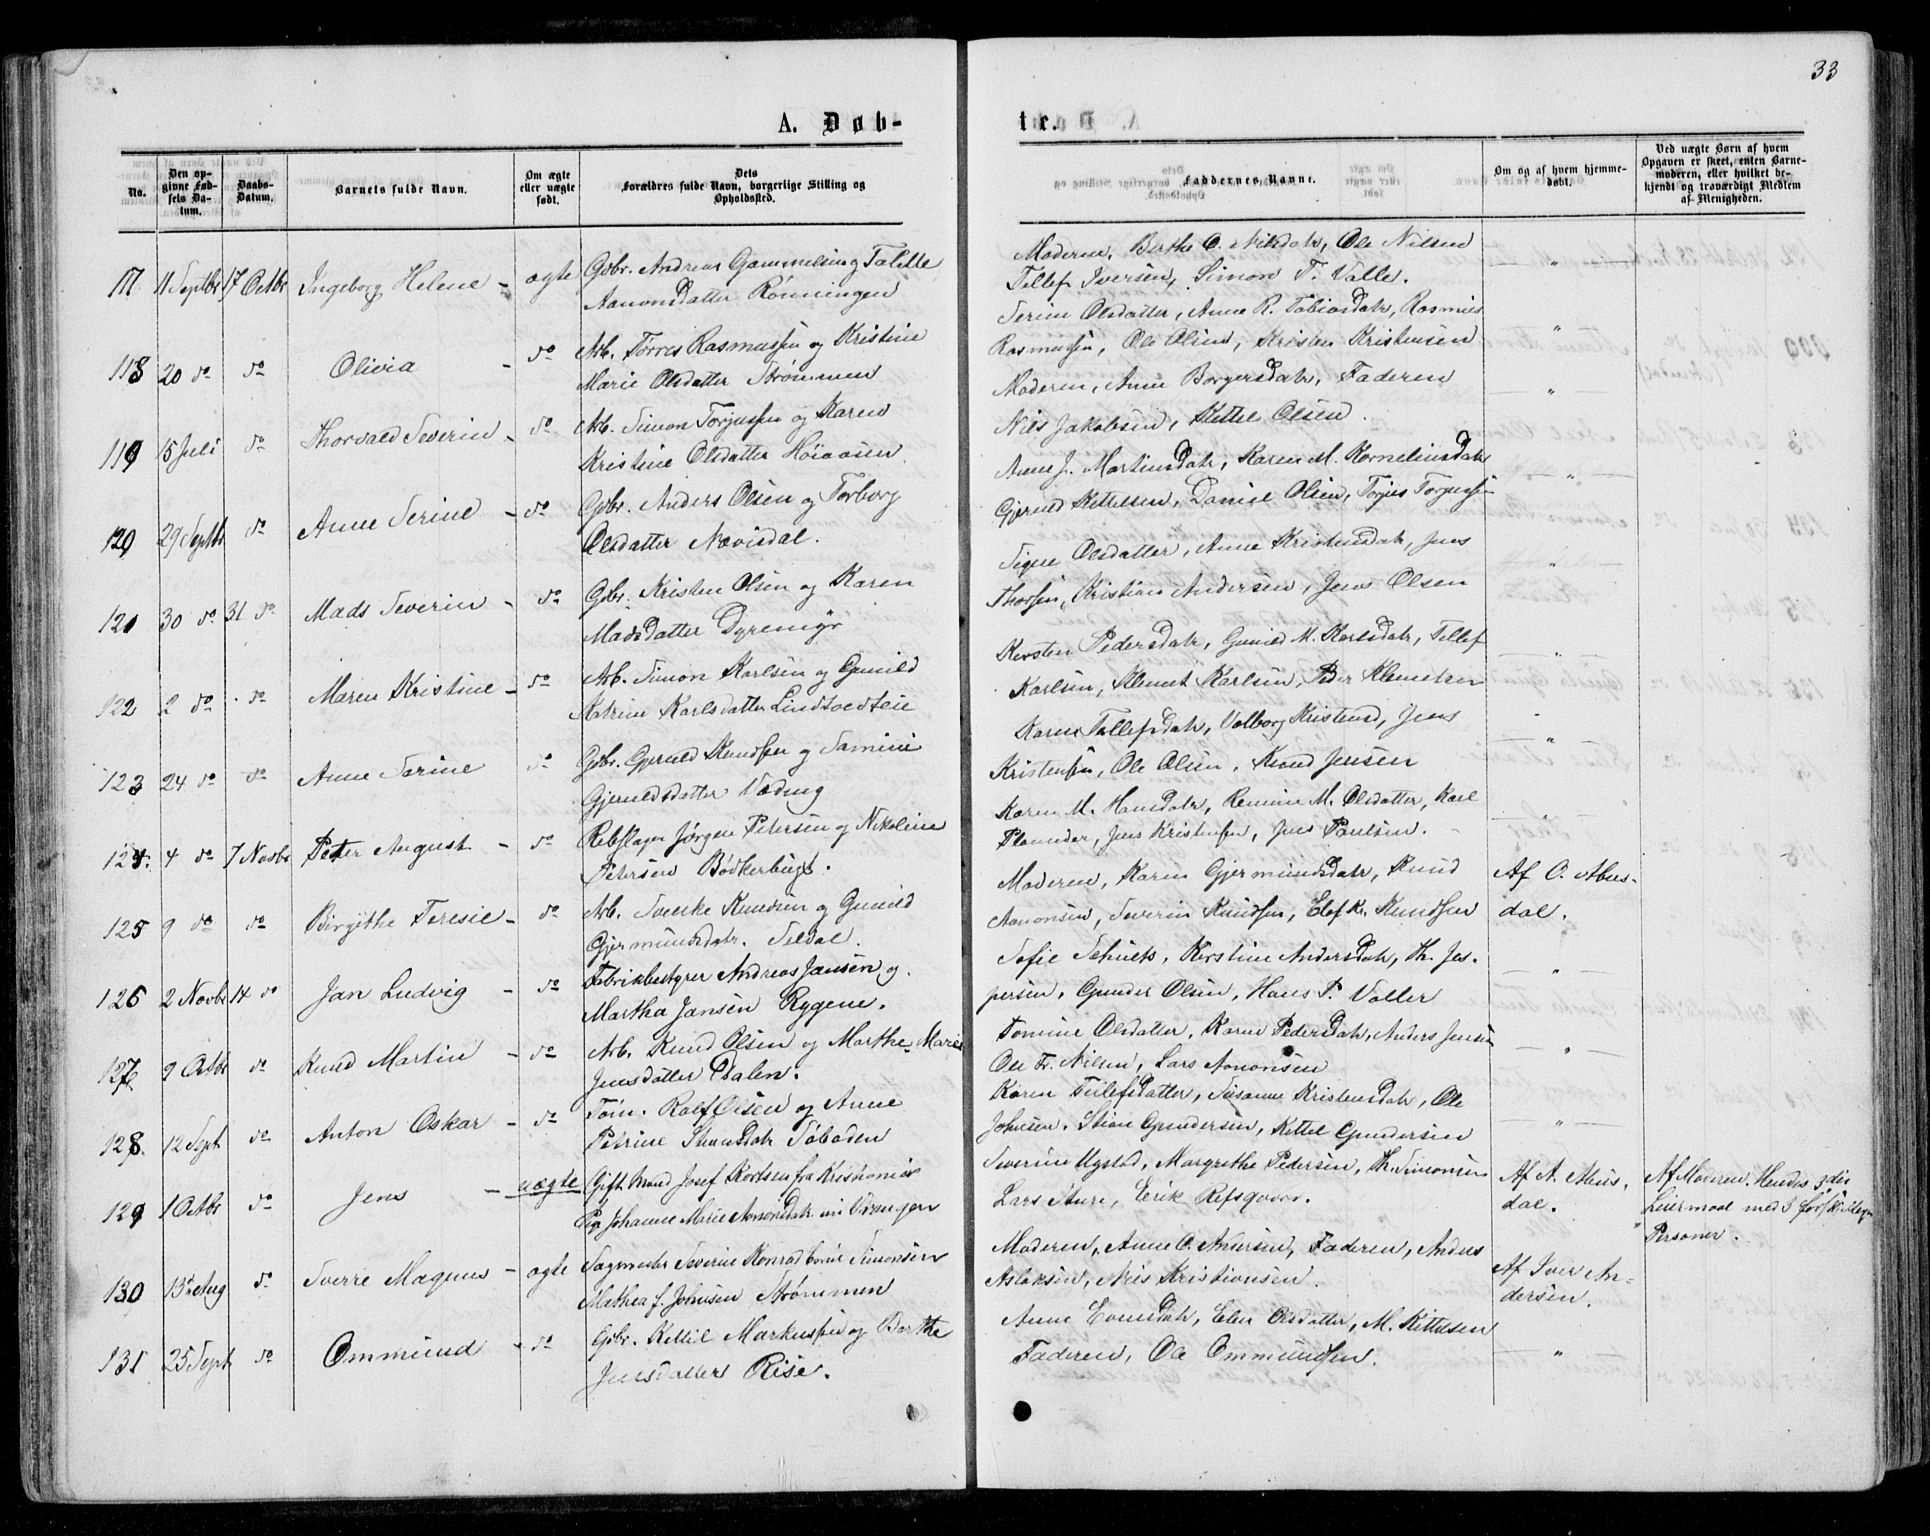 33
A. Døb-
te.
No.
Den op-
givne Fød-
sels Da-
tum.
Daabs-
Datum.
Barnets fulde Navn.
Om ægte
eller uægte
født.
Dets
Forældres fulde Navn, borgerlige Stilling og
Opholdssted.
Faddernes Navne.
Om og af hvem hjemme-
døbt.
Ved uægte Børn af hvem
Opgaven er skeet, enten Barne-
moderen, eller hvilket be-
kjendt og troværdigt Medlem
af Menigheden.
117 11 Septbr 17 Octbr Ingeborg Helene - ægte Gbr. Andreas Gammelsen og Talette
Aanonsdatter Rønningen
Moderen, Berthe O. Nilsdatr, Ole Nilsen
Tellef Iversen, Simon T. Valle.
118 20 do do Olivia - do Arb. Torres Rasmussen og Kristine
Marie Olsdatter Strømmen
Serine Olsdatter, Anne R. Tobiasdatr, Rasmus
Rasmussen, Ole Olsen, Kristen Kristensen
119 15 Juli do Thorvald Severin - do Arb. Simon Torjussen og Karen
Kristine Olsdatter Høiaasen
Moderen, Anne Borgersdatr, Faderen
Nils Jakobsen, Kittel Olsen.
120 29 Septbr do Anne Serine - do Gbr. Anders Olsen og Torborg
Olsdatter Nævisdal.
Anne J. Martinsdatr, Karen M. Korneliusdatr
Gjeruld Kittelsen, Daniel Olsen, Torjus Torjussen
121 30 do 31 do Mads Severin - do Gbr. Kristen Olsen og Karen
Madsdatter Dyremyr
Signe Olsdatter, Anne Kristensdatr, Jens
Thorsen, Kristian Andersen, Jens Olsen
122 2 do do Maren Kristine - do Arb. Simon Karlsen og Gunild
Katrine Karlsdatter Lindtvedteie
Kirsten Pedersdatr, Gunild M. Karlsdatr, Tellef
Karlsen, Klemet Karlsen, Peder Klemetsen
123 24 do do Anne Serine do Gbr. Gjeruld Knudsen og Tamine
Gjeruldsdatter Væding
Karen Tellefsdatr, Valborg Kristensd, Jens
Kristensen, Ole Olsen, Knud Jensen
124. 4 do 7 Novbr Peter August - do Rebslager Jørgen Petersen og Nikoline
Petersen Bødkerbugt.
Karen M. Hansdatr, Remine M. Olsdatter, Karl
Jens Kristensen, Jens Paulsen.
125 9 do do Birgithe Teresie - do Arb. Svenke Knudsen og Gunild
Gjermundsdatr. Seldal.
Moderen, Karen Gjermundsdatr, Knud
Aanonsen, Severin Knudsen, Elef K. Knudsen
Af O. Abus-
dal.
126 2 Novbr 14 do Jan Ludvig - do Fabrikbestyrer Andreas Jansen og
Martha Jansen Rygene.
Sofie Schults, Kirstine Andersdatr, Th. Jes-
persen, Gunder Olsen, Hans P. Valler
127 9 Octbr do Knud Martin - do Arb. Knud Olsen og Marthe Marie
Jensdatter Dalen.
Tomine Olsdatter, Karen Pedersdatr, Anders Jensen
Ole Fr. Nilsen, Lars Aanonsen
128. 12 Sept do Anton Oskar - do Tøm. Rolf Olsen og Anne
Petrine Simonsdatr Søboden
Karen Tellefsdatter, Susanne Kristensdatr, Ole
Johnsen, Stian Gundersen, Kittel Gundersen
129 1 Octbr do Jens - uægte Gift Mand Josef Kortsen fra Kristiania
Pige Johanne Marie Aanonsdatr Vrangen
Severine Ugstad, Margrethe Pedersen, Th. Simonsen
Lars Sture, Erik Refsgaard.
Af A. Abus-
dal.
Af Moderen. Hendes 3die
Leiermaal med 3 forskjellige
Personer.
130 13de Aug do Sverre Magnus - ægte Sagmester Severin Konrad Simonsen
Mathea f. Johnsen Strømmen
Moderen, Anne O. Andersen, Faderen, Anders
Aslaksen, Nils Kristiansen.
Af Iver An-
dersen.
131 25 Sept do Ommund - do Gbr. Kittil Markussen og Berthe
Jensdatters Rise.
Anne Evensdatr, Elen Olsdatter, M. Kittelsen
Faderen, Ole Ommundsen.